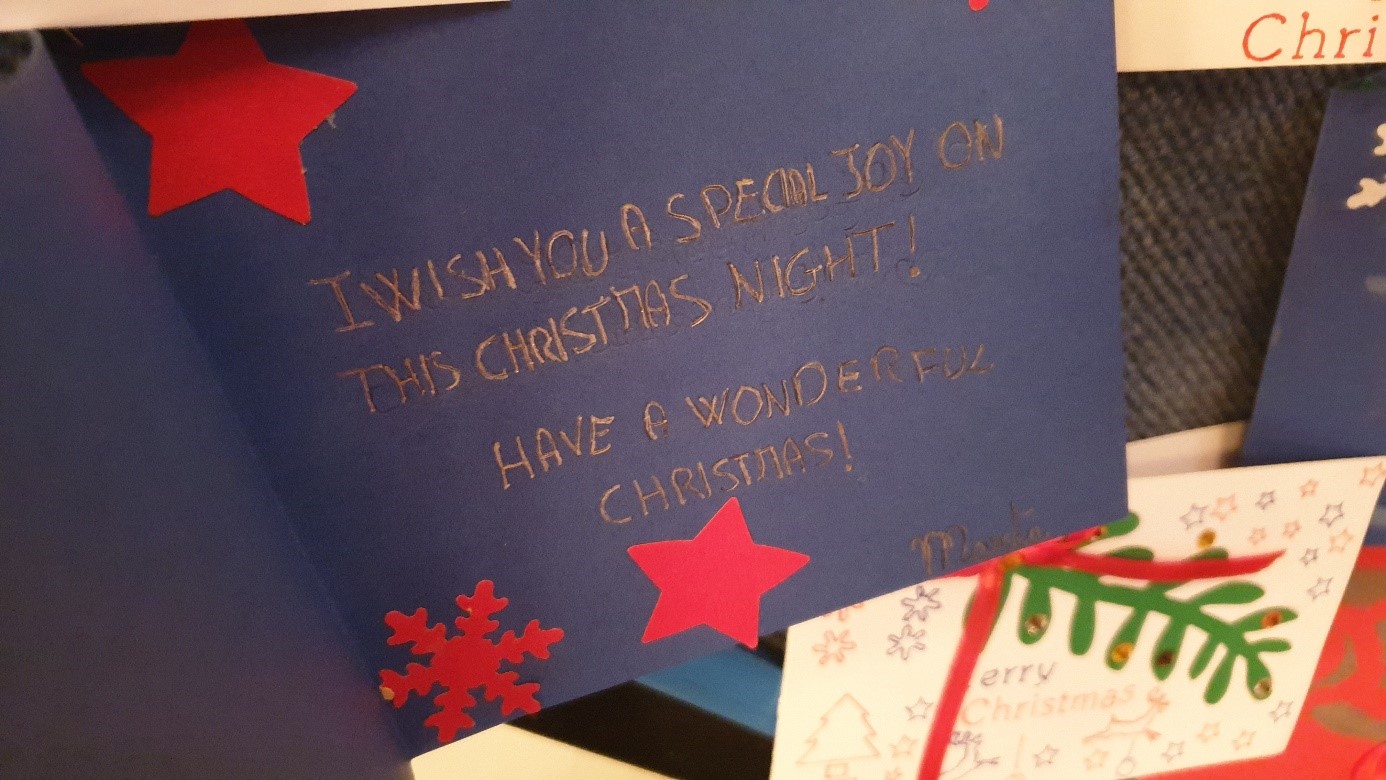 Chri
I WISH YOU A SPECIAL JOY ON
THIS CHRISTMAS NIGHT!
HAVE A WONDERFUL
CHRISTMAS!
erry
Christmas